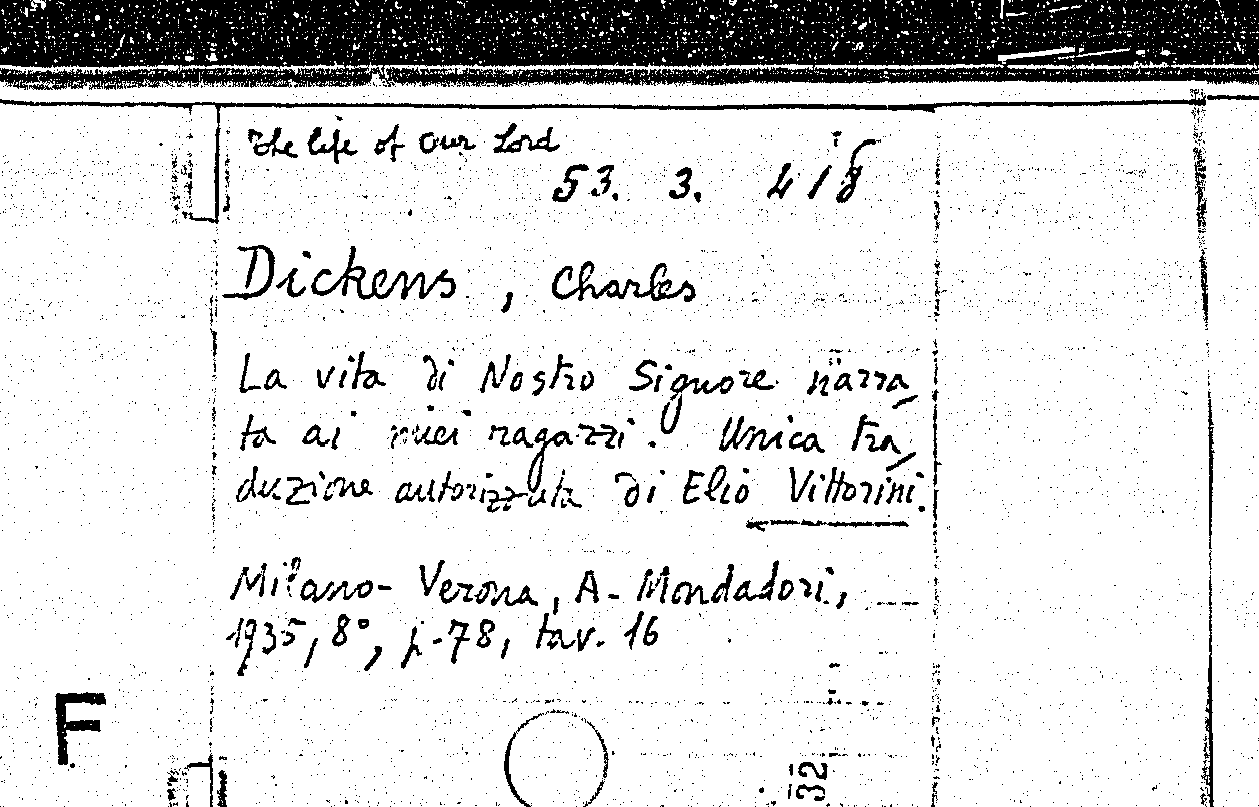 The life of Our Lord
53. 3. 418
Dickens, Charles
La vita di Nostro Signore narra-
ta ai miei ragazzi. Unica tra-
duzione autorizzata di Elio Vittorini.
Milano-Verona, A. Mondadori,
1935, 8°, p. 78, tav. 16
F
32